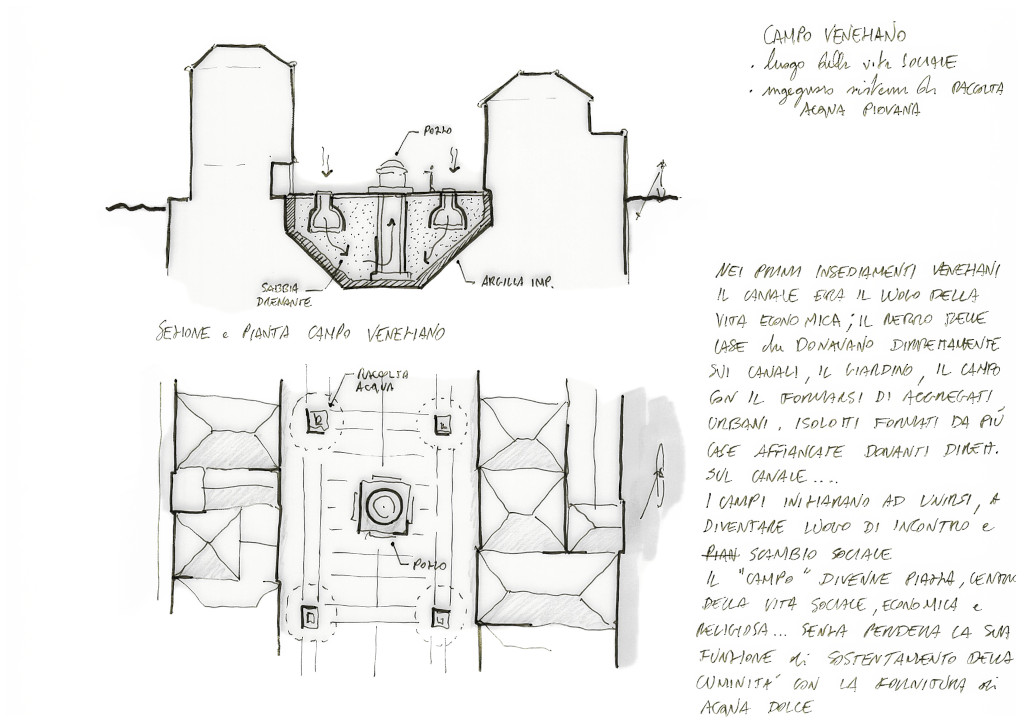 CAMPO VENEZIANO
• luogo della vita SOCIALE
• ingegnoso sistema di RACCOLTA
ACQUA PIOVANA
POZZO
SABBIA
DRENANTE
ARGILLA IMP.
SEZIONE e PIANTA CAMPO VENEZIANO
RACCOLTA
ACQUA
POZZO
NEI PRIMI INSEDIAMENTI VENEZIANI
IL CANALE ERA IL LUOGO DELLA
VITA ECONOMICA; IL RETRO DELLE
CASE che DONAVANO DIRETTAMENTE
SUI CANALI, IL GIARDINO, IL CAMPO
CON IL FORMARSI DI AGGREGATI
URBANI, ISOLOTTI FORMATI DA PIÚ
CASE AFFIANCATE DONANTI DIRETT.
SUL CANALE....
I CAMPI INIZIARANO AD UNIRSI, A
DIVENTARE LUOGO DI INCONTRO e
PIAN SCAMBIO SOCIALE
IL "CAMPO" DIVENNE PIAZZA, CENTRO
DELLA VITA SOCIALE, ECONOMICA e
RELIGIOSA... SENZA PERDERE LA SUA
FUNZIONE di SOSTENTAMENTO DELLA
CUMINITÀ CON LA FORNITURA di
ACQUA DOLCE